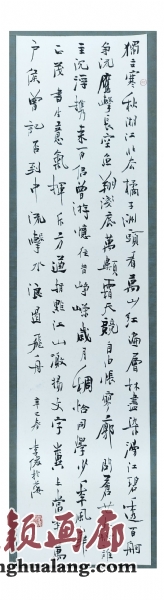 獨立寒秋湘江北去橘子洲頭看萬山红遍層林盡染漫江碧透百舸
爭流鷹擊長空魚翔淺底萬類霜天競自由悵寥廓問蒼茫誰
主沉浮携來百侣曾游憶往昔崢嶸歲月稠恰同學少年風華
正茂書生意氣揮斥方遒指點江山激揚文字糞土當年萬
户侯曾記否到中流擊水浪遏飛舟 辛巳春
颖画廊
nghualang.com